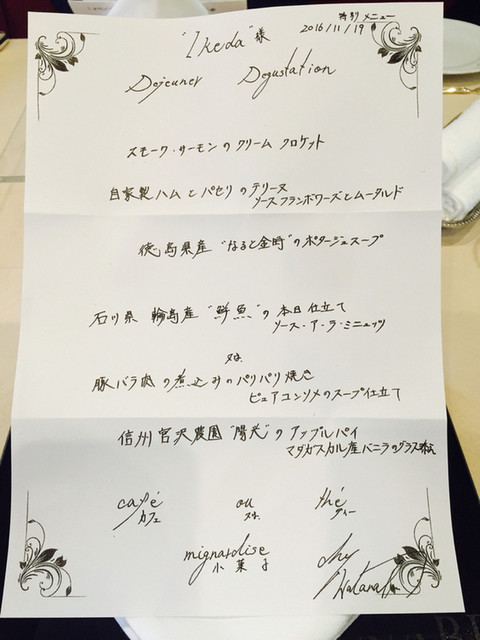 特別メニュー
2016/11/19
"Ikeda" 様
Dejeuner Degustation
スモーク・サーモンのクリーム クロケット
自家製ハムとパセリのテリーヌ
ソースフランボワーズとムータルド
徳島県産"なると金時"のポタージュスープ
石川県 輪島産"鮮魚"の本日仕立て
ソース・ア・ラ・ミニュッツ
又は
豚バラ肉の煮込みのパリパリ焼き
ピュアコンソメのスープ仕立て
信州宮沢農園"陽光"のアップルパイ
マダガスカル産バニラのグラス添え
café ou thé
カフェ 又は ティー
mignardise
小菓子
Watanabe